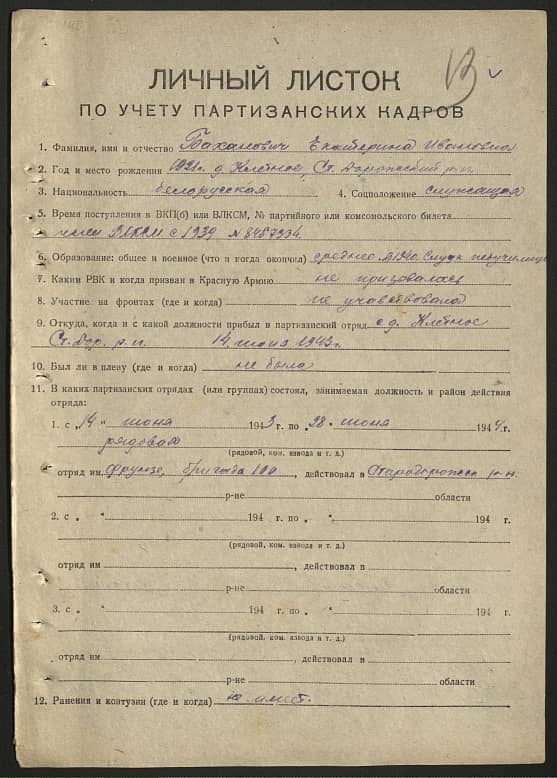 ЛИЧНЫЙ ЛИСТОК
ПО УЧЕТУ ПАРТИЗАНСКИХ КАДРОВ
1. Фамилия, имя и отчество Баханович Екатерина Ивановна
2. Год и место рождения 1921г. д. Клетное, Ст. Дорожский р-н.
3. Национальность белорусская 4. Соцположение служащая
5. Время поступления в ВКП(б) или ВЛКСМ, № партийного или комсомольского билета
член ВЛКСМ с 1939 № 8487334.
6. Образование: общее и военное (что и когда окончил) среднее в 1940. Слуцк педучилище
7. Каким РВК и когда призван в Красную Армию не призовалась
8. Участие на фронтах (где и когда) не учавствовала
9. Откуда, когда и с какой должности прибыл в партизанский отряд с д. Клетное
Ст. Дор. р-н. 14 июня 1943г.
10. Был ли в плену (где и когда) не была
11. В каких партизанских отрядах (или группах) состоял, занимаемая должность и район действия
отряда:
1. с „14" июня 1943 г. по „28" июня 1944 г.
рядовая
(рядовой, ком. взвода и т. д.)
отряд им. Фрунзе, бригада 100, действовал в Стародорожск р-н.
р-не области
2. с „ " 194 г. по „ " 194 г.
(рядовой, ком. взвода и т. д.)
отряд им , действовал в
р-не области
3. с „ " 194 г. по „ " 194 г.
(рядовой, ком. взвода и т. д.)
отряд им , действовал в
р-не области
12. Ранения и контузии (где и когда) не имеет.